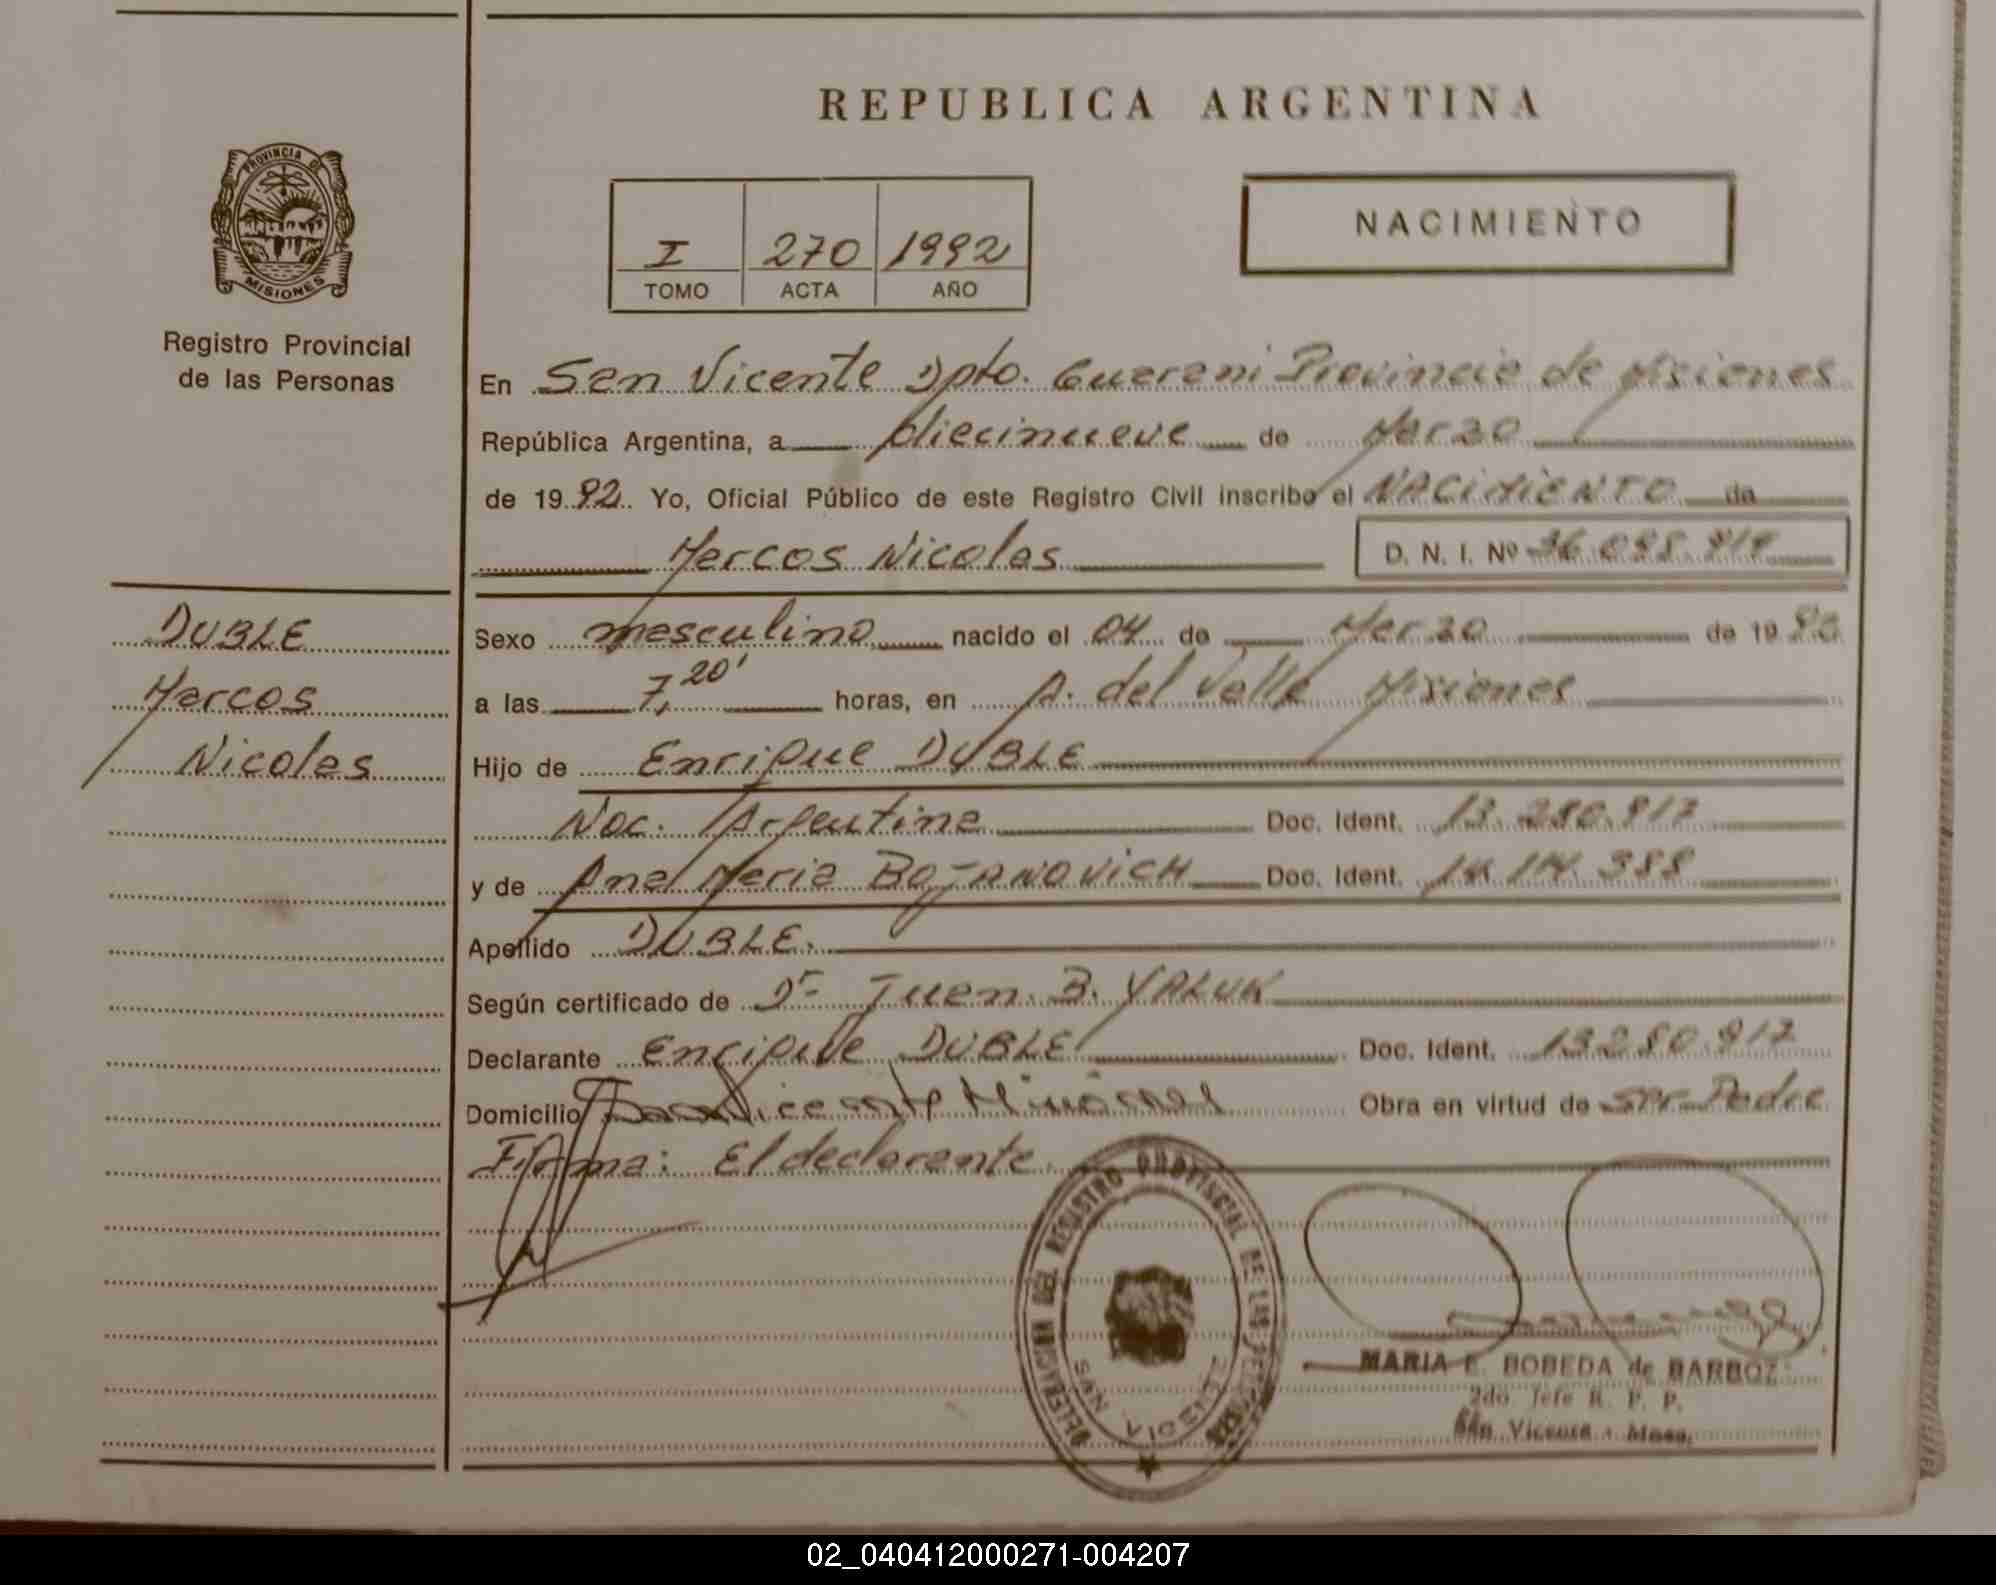 REPUBLICA ARGENTINA
PROVINCIA DE
MISIONES
Registro Provincial
de las Personas
I 270 1992
TOMO ACTA AÑO
NACIMIENTO
En San Vicente Dpto. Guarani Provincia de Misiones
República Argentina, a diecinueve de Marzo
de 19 92. Yo, Oficial Público de este Registro Civil inscribo el NACIMIENTO de
Marcos Nicolas D. N. I. Nº
DUBLE
Marcos
Nicolas
Sexo masculino nacido el 04 de Marzo de 19
a las 7,20' horas, en A. del Valle Misiones
Hijo de Enrique DUBLE
Nac. Argentina Doc. Ident. 13.280.917
y de Ana Maria BOJANOVICH Doc. Ident. 14.114.388
Apellido DUBLE.
Según certificado de Dr Juan B. YALUK
Declarante Enrique DUBLE Doc. Ident. 13280.917
Domicilio San Vicente Misiones Obra en virtud de Ser Padre
Firma: El declarante.
DELEGACION DEL REGISTRO PROVINCIAL DE LAS PERSONAS
SAN VICENTE
MARIA E. BOBEDA de BARBOZ
2do. Jefe R. P. P.
San Vicente - Mnes.
02_040412000271-004207